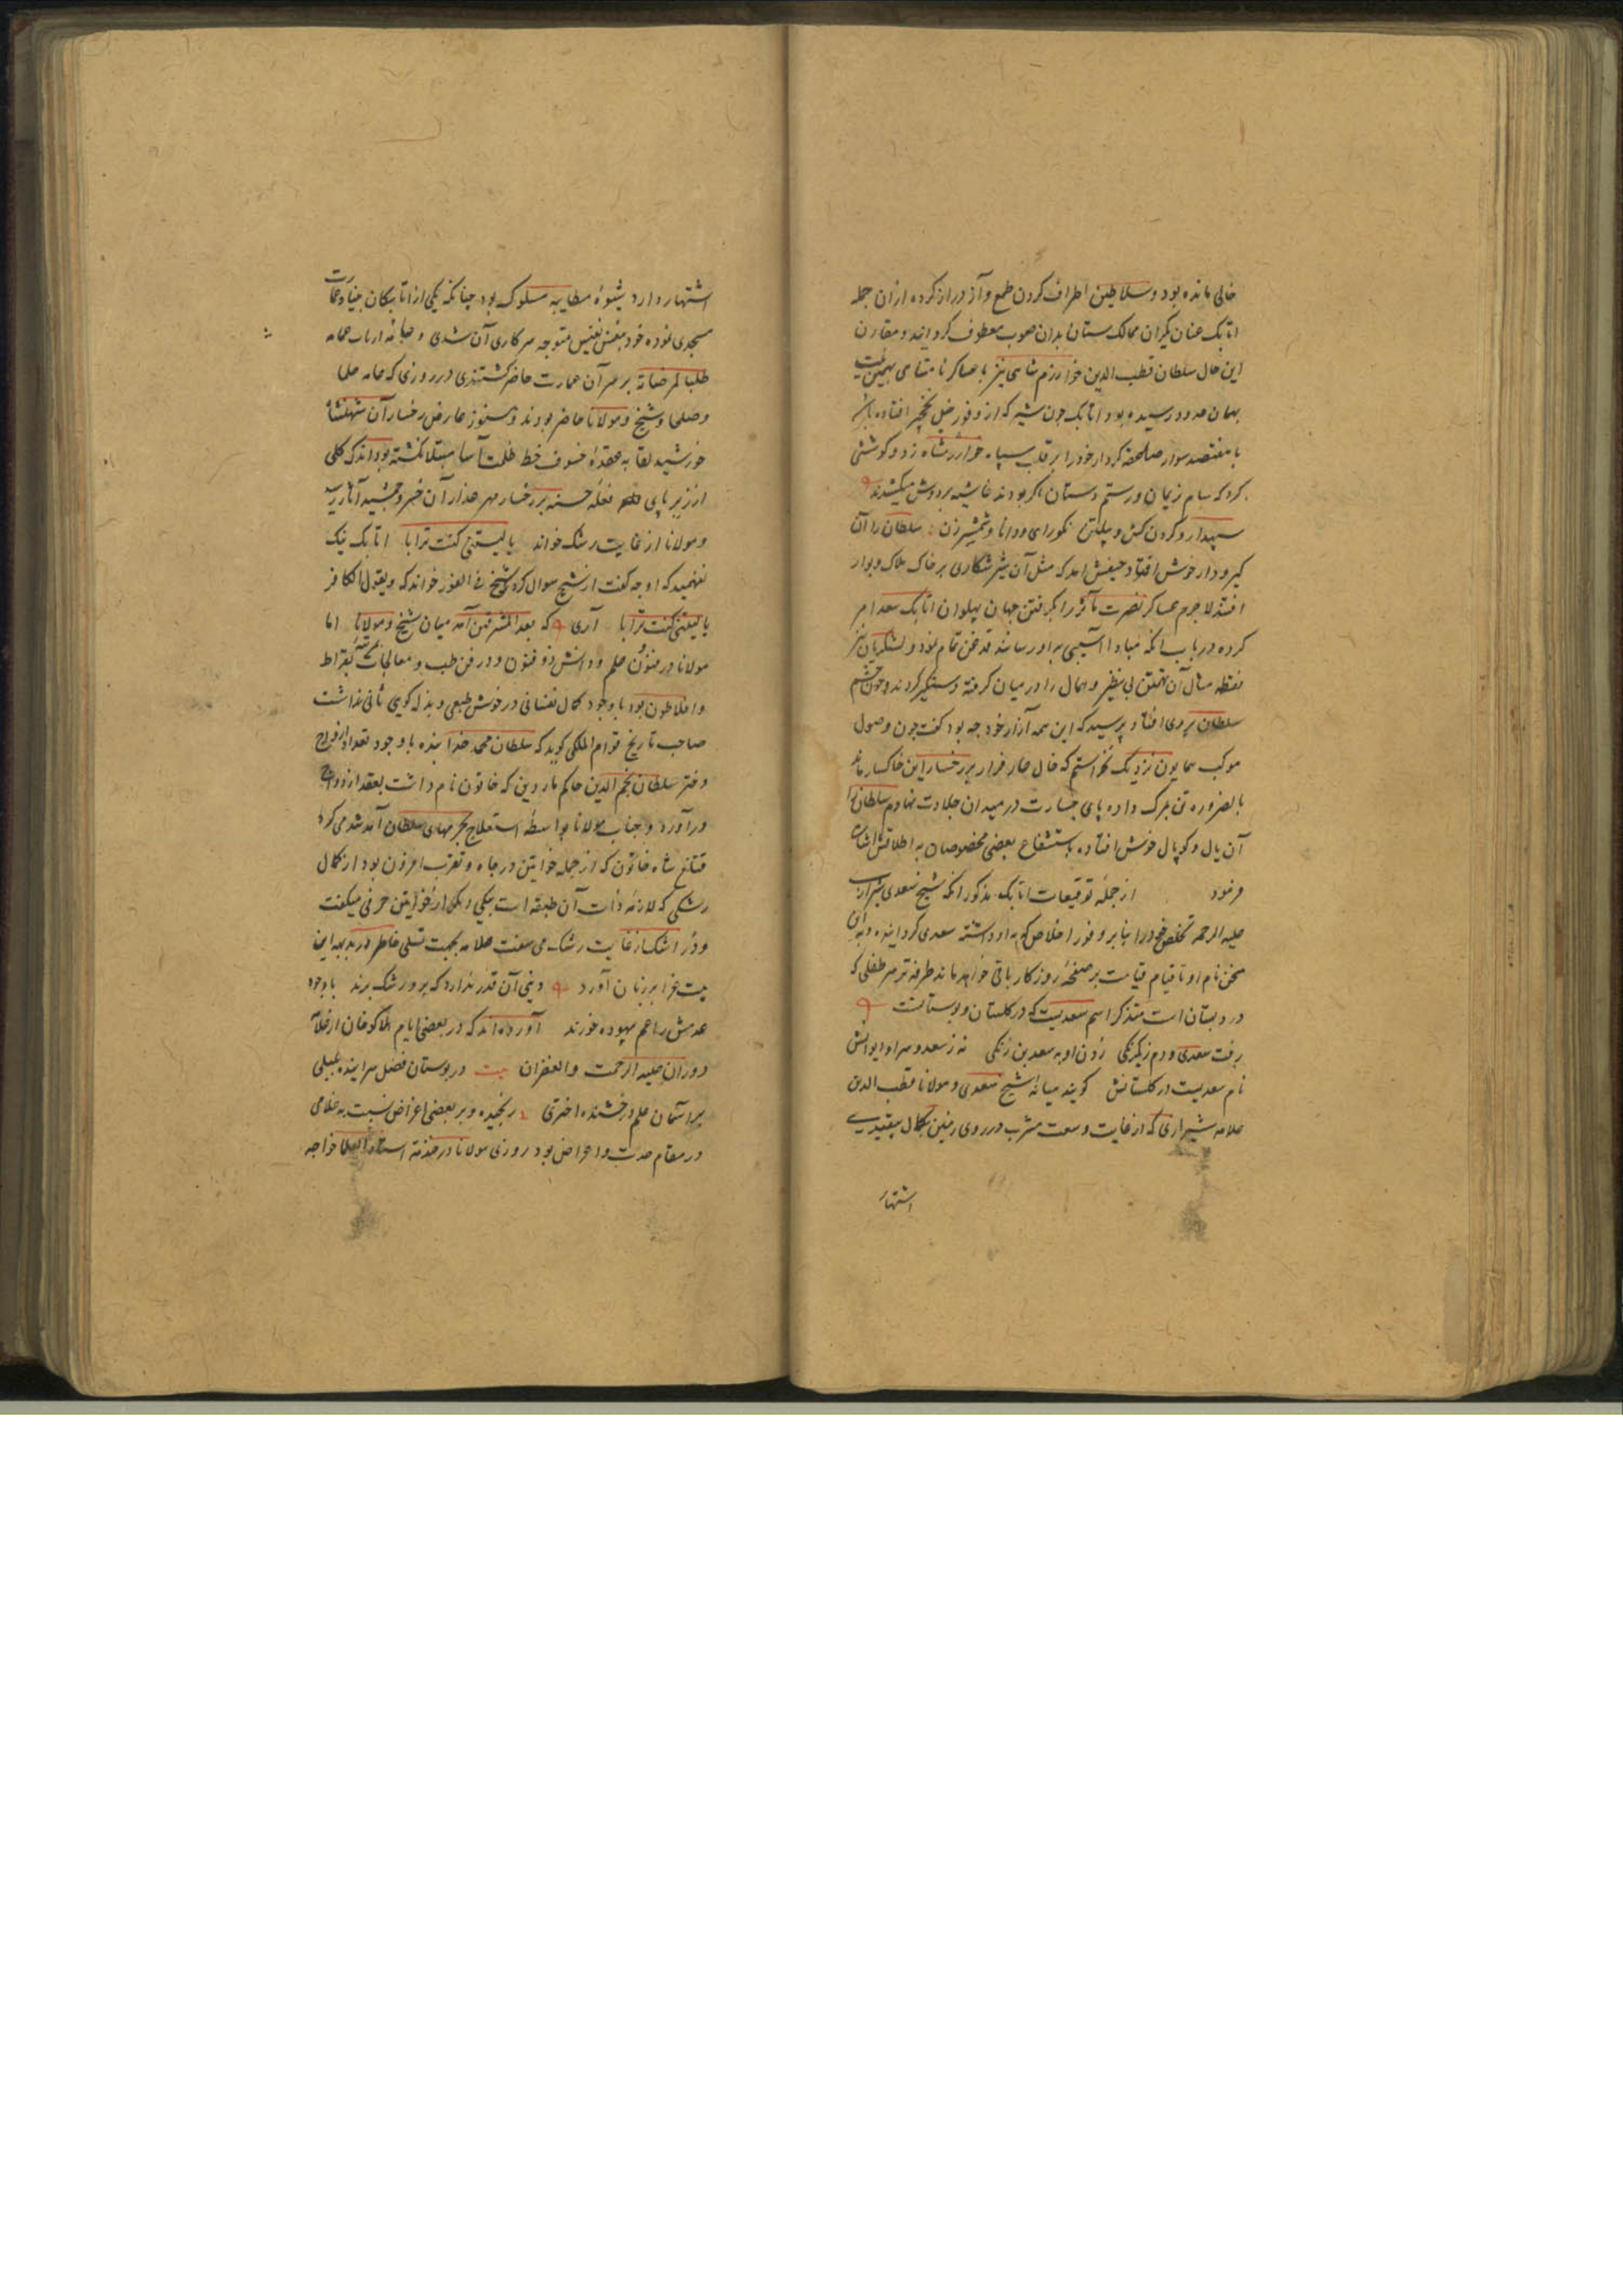 خالی مانده بود و سلاطین اطراف گردن طمع و آز دراز کرده از آن جمله
اتابک عنان یکران ممالک ستان بدان صوب معطوف گردانید و مقارن
این حال سلطان قطب الدین خوارزم شاهی نیز با عساکر نامتناهی بهمین نیت
بهمان حدود رسیده بود اتابک چون شیر که از وفور خیل نخچیر افتاده باشد
با هفتصد سوار صاعقه کردار خود را بر قلب سپاه خوارزمشاه زد و کوششی
کرد که سام نریمان و رستم دستان اگر بودند غاشیه بر دوش میکشیدند
سپهدار و گردن کش و پیلتن نکورای و دانا و شمشیرزن سلطان را آن
گیر و دار خوش افتاد حیفش امد که مثل آن شیر شکاری بر خاک هلاک و بوار
افتد لاجرم عساکر نصرت مآثر را بگرفتن جهان پهلوان اتابک سعد امر
کرده در باب انکه مبادا آسیبی به او رسانند قدغن تمام نمود و لشکریان نیز
نقطه مثال آن تهمتن بی نظیر و همال را در میان گرفته دستگیر کردند و چون چشم
سلطان بروی افتاد پرسید که این همه آزار خود چه بود گفت چون وصول
موکب همایون نزدیک نخواستم که خال عار فرار بر رخسار این خاکسار ماند
بالضروره تن بمرگ داده پای جسارت در میدان جلادت نهادم سلطان را
آن یال و کوپال خوش افتاده باستشفاع بعضی مخصوصان به اطلاقش اشارت
فرمود از جمله توقیعات اتابک مذکور انکه شیخ سعدی شیرازی
علیه الرحمه تخلص خود را بنابر وفور اخلاص که به او داشته سعدی گردانیده و به این
سخن نام او تا قیام قیامت بر صفحه روزگار باقی خواهد ماند طرفه تر هر طفلی که
در دبستان است متذکر اسم سعدیست که در گلستان و بوستانست
رفت سعدی و دم ز یکرنگی زدن او به سعد بن زنگی نه ز سعد و سرا و ایوانش
نام سعدیست در گلستانش گویند میانه شیخ سعدی و مولانا قطب الدین
علامه شیرازی که از غایت وسعت مشرب در روی زمین بکمال بیقیدی
اشتهار
اشتهار دارد شیوه مطایبه مسلوک بود چنانکه یکی از اتابکان بنیاد عمارت
مسجدی نموده خود بنفس نفیس متوجه سرکاری آن شدی و ارباب عمامه
طلبا لمرضاته بر سر آن عمارت حاضر گشتندی در روزی که عامه علما
و صلحا و شیخ و مولانا حاضر بودند و هنوز عارض رخسار آن شهنشاه
خورشید لقا به عقده خسوف خط ظلمت آسا مبتلا نگشته بود اندک گلی
از زیر پای بر رخسار مهر عذار آن خسرو جمشید آثار رسید
و مولانا از غایت رشک خواند یا لیتنی کنت ترابا اتابک نیک
نفهمید که او چه گفت از شیخ سوال کرد شیخ فی الفور خواند که و یقول الکافر
یا لیتنی کنت ترابا آری که بعد المشرقین آمد میان شیخ و مولانا اما
مولانا در فنون علم و دانش ذو فنون و در فن طب و معالجات بقراط
و افلاطون بود با وجود کمال نفسانی در خوش طبعی و بذله گویی ثانی نداشت
صاحب تاریخ قوام الملکی گوید که سلطان محمد خدابنده با وجود تعداد ازواج
دختر سلطان نجم الدین حاکم ماردین که خاتون نام داشت بعقد ازدواج
درآورد و جناب مولانا بواسطه استعلاج بحرمهای سلطان آمد شد می کرد
قتلغ شاه خاتون که از جمله خواتین در جاه و تقرب افزون بود از کمال
رشکی که لازمه ذات آن طبقه است بیکی دیگر از خواتین حرفی میگفت
و در اشک از غایت رشک می سفت علامه بجهت تسلی خاطر او بدیهه این
بیت غرا بر زبان آورد دنیی آن قدر ندارد که برو رشک برند یا وجود
عدمش را غم بیهوده خورند آورده اند که در بعضی ایام هلاکو خان از علامه
دوران علیه الرحمت و الغفران بیت در بوستان فضل سراینده بلبلی
بر آسمان علم درخشنده اختری رنجیده و بر بعضی اعراض نسبت به غلامی
در مقام حدت و اعراض بود روزی مولانا در خدمت استاد العلما خواجه